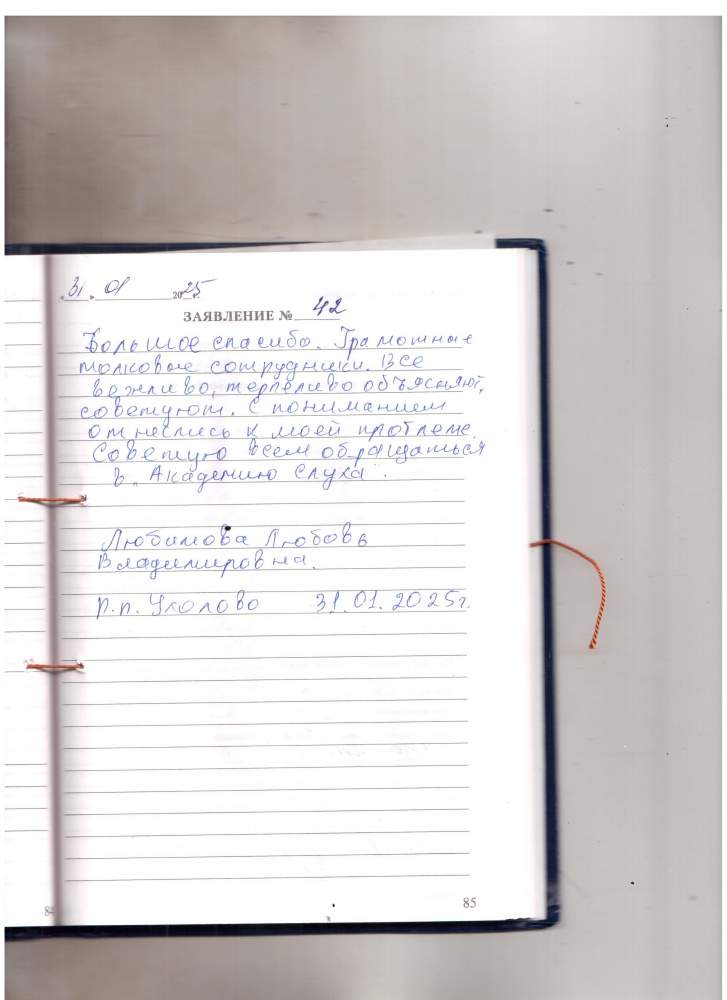 „31" 01 2025г.
ЗАЯВЛЕНИЕ № 42
Большое спасибо. Грамотные
толковые сотрудники. Все
вежливо, терпеливо объясняют,
советуют. С пониманием
отнеслись к моей проблеме.
Советую всем обращаться
в „Академию слуха".
Любимова Любовь
Владимировна.
р.п. Ухолово 31.01.2025г.
84
85